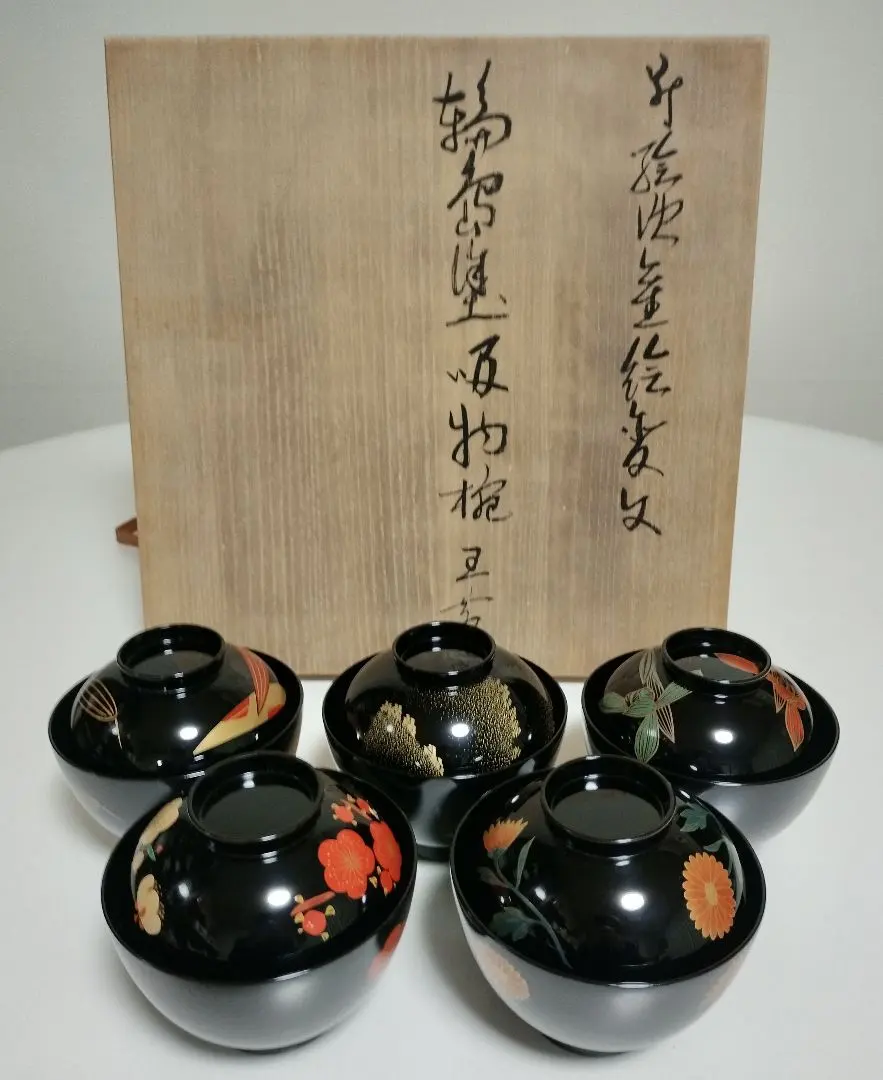 蒔絵沈金絵変文
輪島塗吸物椀五客